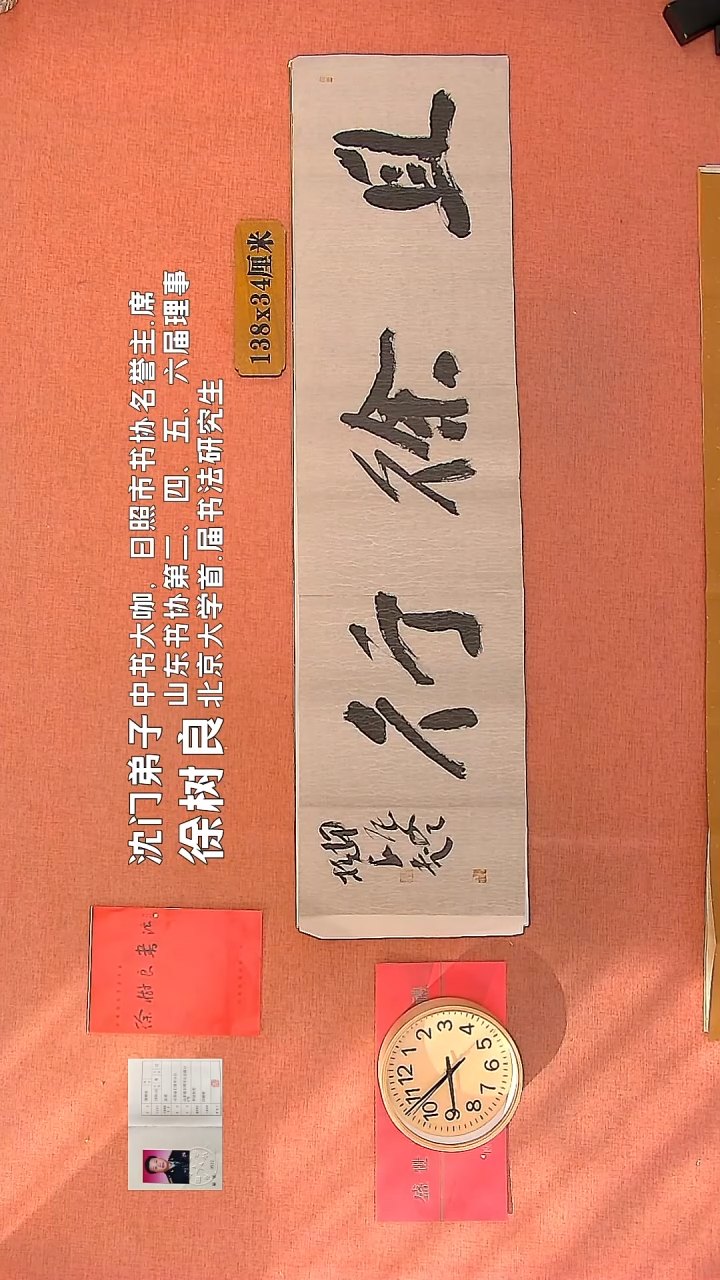 沈门弟子 中书大咖，日照市书协名誉主.席
山东书协第三、四、五、六届理事
徐树良 北京大学首.届书法研究生
138x34厘米
且徐行
徐树良书法
盛世
12
1
2
3
4
5
6
7
8
9
10
11